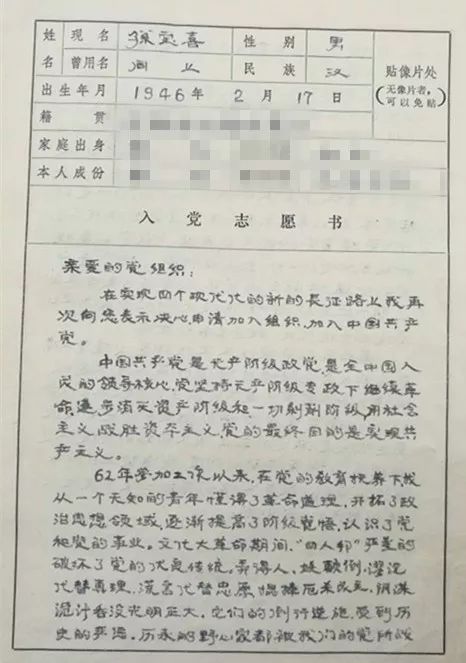 姓 现名 徐定喜 性别 男
名 曾用名 同上 民族 汉
贴像片处
(无像片者,可以免贴)
出生年月 1946年 2月 17日
籍贯
家庭出身
本人成份
入党志愿书
亲爱的党组织:
在实现四个现代化的新的长征路上我再
次向您表示决心,申请加入组织,加入中国共产
党。
中国共产党是无产阶级政党,是全中国人
民的领导核心,党坚持无产阶级专政下继续革
命,逐步消灭资产阶级和一切剥削阶级,用社会
主义战胜资本主义,党的最终目的是实现共
产主义。
62年参加工作以来,在党的教育扶养下我
从一个无知的青年懂得了革命道理,开拓了政
治思想领域,逐渐提高了阶级觉悟,认识了党
和党的事业。文化大革命期间,"四人帮"严重的
破坏了党的优良传统。 谬论
代替真理,谎言代替忠 阴谋
诡计吞没光明正大,它们的倒行逆施,受到历
史的严惩,历来的野心家都被我们的党所战